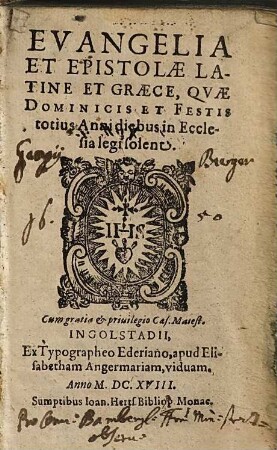 EVANGELIA
ET EPISTOLÆ LA-
TINE ET GRÆCE, QVÆ
DOMINICIS ET FESTIS
totius Anni diebus in Eccle-
sia legi solent.
Georgij Burger
16. 50
IHS
Cum gratia & priuilegio Cæs. Maiest.
INGOLSTADII,
Ex Typographeo Ederiano, apud Eli-
sabetham Angermariam, viduam.
Anno M. DC. XVIII.
Sumptibus Ioan. Herts Bibliop. Monac.
Pro Bamberg.